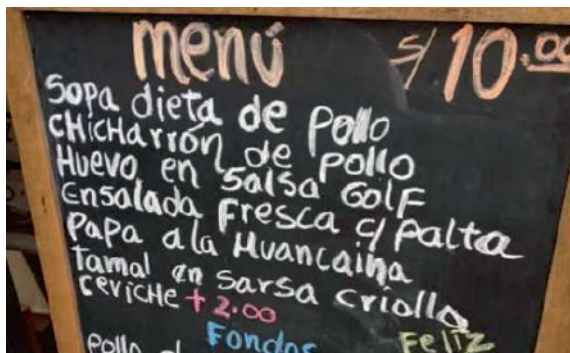 menú S/10.00
Sopa dieta de Pollo
CHiCHarrón de Pollo
Huevo en Salsa GolF
Ensalada Fresca c/ Palta
Papa ala Huancaina
tamal en sarsa criolla
ceviche + 2.00
Fondos Feliz
Pollo